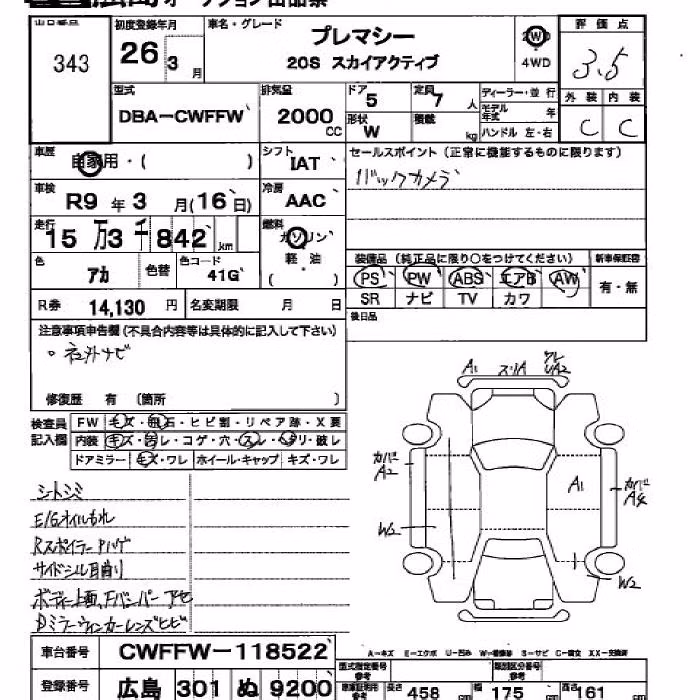 広島 オークション出品票
出品番号
343
初度登録年月
26 3 月
車名・グレード
プレマシー
20S スカイアクティブ
2W
4WD
評価点
3.5
外装 内装
C C
型式
DBA-CWFFW
排気量
2000 CC
ドア 5
定員 7 人
形状 W
積載 kg
ディーラー・並行
モデル年式 年
ハンドル 左・右
車歴 自家用・( )
シフト IAT
セールスポイント (正常に機能するものに限ります)
バックカメラ
車検 R9 年 3 月(16 日)
冷房 AAC
走行 15 万 3 千 842 km
燃料 ガソリン
軽油
( )
色 アカ 色替
色コード 41G
装備品 (純正品に限り○をつけてください)
新車保証書
PS PW ABS エアB AW
有・無
SR ナビ TV カワ
R券 14,130 円
名変期限 月 日
後日品
注意事項申告欄(不具合内容等は具体的に記入して下さい)
○社外ナビ
修復歴 有 〔箇所 〕
検査員記入欄
FW キズ・飛石・ヒビ割・リペア跡・X要
内装 キズ・汚レ・コゲ・穴・スレ・ヘタリ・破レ
ドアミラー キズ・ワレ ホイール・キャップ キズ・ワレ
シートシミ
E/Gオイルもれ
Rスポイラーハゲ
サイドシル目削り
ボディー上面、Fバンパーアセ
Dミラーウィンカーレンズヒビ
A1 スリA ワレ UA2
カバー A2
W2
A1
カバー A4
W2
A-キズ E-エクボ U-凹み W-補修跡 S-サビ C-腐食 XX-交換済
車台番号 CWFFW-118522
登録番号 広島 301 ぬ 9200
型式指定番号
類別区分番号
長さ 458 cm
幅 175 cm
高さ 161 cm